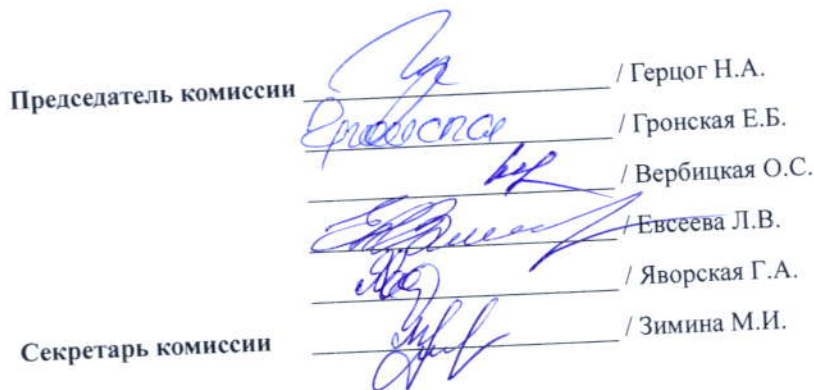 Председатель комиссии / Герцог Н.А.
/ Гронская Е.Б.
/ Вербицкая О.С.
/ Евсеева Л.В.
/ Яворская Г.А.
Секретарь комиссии / Зимина М.И.